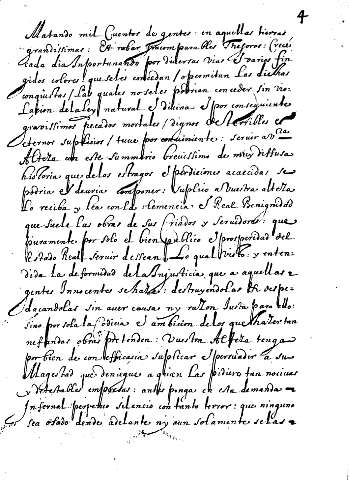 4
Matando mil Cuentos de gentes: en aquellas tierras
grandissimas: Et robar Incomparables thesoros: Crece
cada dia Importunando por diversas vias E varios fin
gidos colores / que se les concedan / o permitan Las dichas
conquistas / Las quales no se les podrian conceder sin vio
lacion de la ley natural E divina E por consequiente
gravissimos pecados mortales / dignos de terribles E
eternos suplicios / tuve por conviniente: servir a v̅r̅a̅
Alteza con este summario brevissimo de muy diffusa
historia que de los estragos E perdiciones acaecidas se
podria E devria componer: suplico a Vuestra alteza
Lo reciba y lea con la clemencia E Real benignidad
que suele las obras de sus Criados y servidores: que
puramente por solo el bien publico E prosperidad del
estado Real servir dessean. Lo qual visto: y enten
dida la deformidad de la Injusticia, que a aquellas
gentes Innocentes se haze: destruyendolas E despe
daçandolas sin aver causa ny razon Justa para ello:
sino por sola la codicia E ambicion de los que hazer tan
nefandas obras pretenden: Vuestra Alteza tenga
por bien de con efficacia suplicar E persuadir a su
Magestad que deniegue a quien las pidiere tan nocivas
y detestables empresas: antes ponga en esta demanda
Infernal perpetuo silencio con tanto terror: que ninguno
sea osado dende adelante ny aun solamente se las